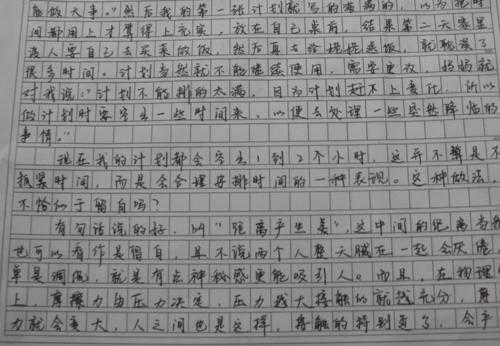 能做大事。”然后我的第一张计划就写的满满的，以为把时
间都用上才算得上充实，放在自己桌前，结果第二天家里
没人要自己去买菜做饭，然后真去给烧烧菜饭，就耽误了
很多时间。计划当然就不能继续使用，需要更改，妈妈就
对我说：“计划不能排的太满，因为计划赶不上变化，所以
做计划时要空出一些时间来，以便去处理一些突然降临的
事情。”
现在我的计划都会空出1到2个小时，这并不算是不
抓紧时间，而是会合理安排时间的一种表现。这种做法，
不恰似于留白吗？
有句话说的好，叫“距离产生美”，这中间的距离
也可以看作是留白，且不说两个人整天腻在一起会厌倦
单是调侃，就是有点神秘感更能吸引人。而且，在物理
上，摩擦力由压力决定，压力越大接触的就越充分，摩
力就会变大，人之间也是这样，接触的特别近了，会产